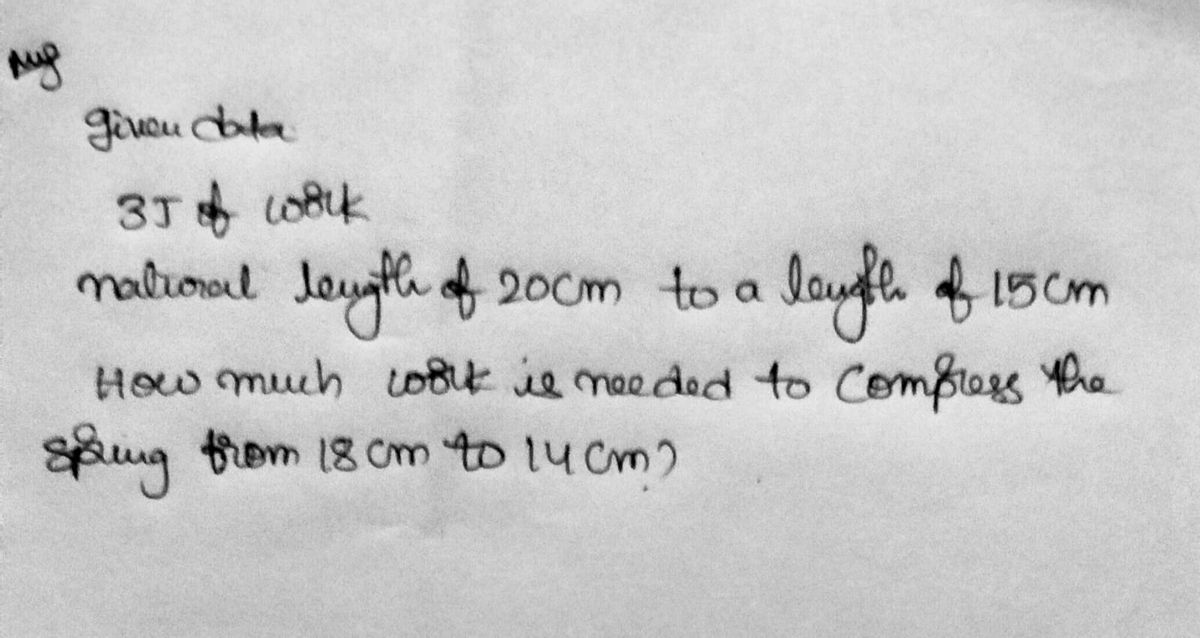 given data
3J of work
natural length of 20cm to a length of 15cm
How much work is needed to Compress the
spring from 18 cm to 14 cm?